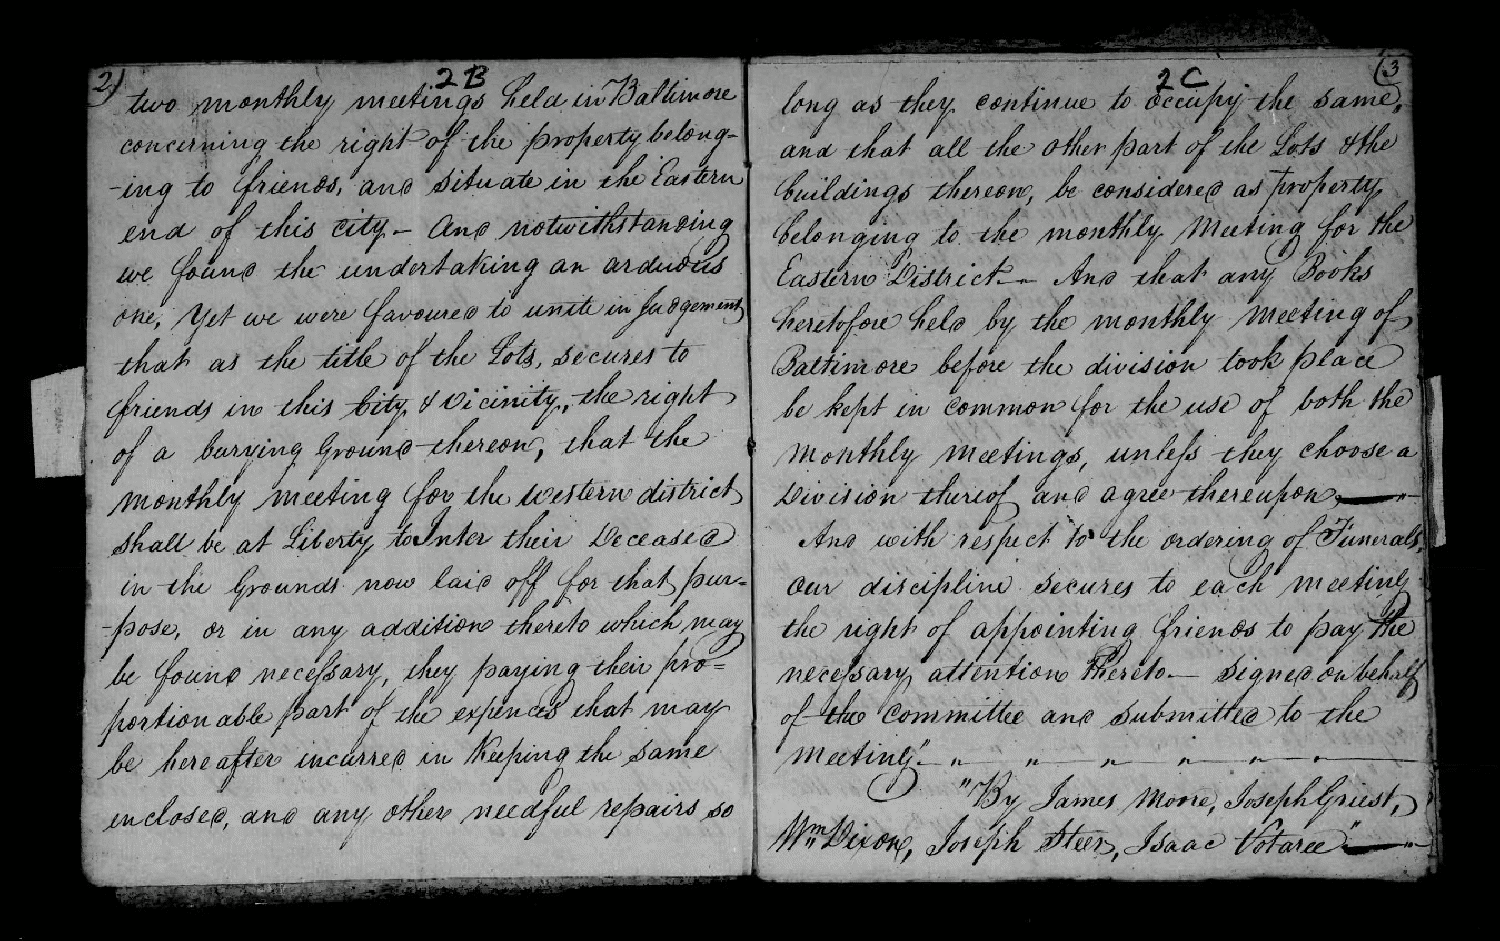 2)
2B
two monthly meetings held in Baltimore
concerning the right of the property belong-
-ing to friends, and situate in the Eastern
end of this city – And notwithstanding
we found the undertaking an arduous
one, Yet we were favoured to unite in Judgement
that as the title of the Lots, secures to
friends in this City, & Vicinity, the right
of a burying Ground thereon, that the
monthly meeting for the Western district
shall be at Liberty to Inter their Deceased
in the Grounds now laid off for that pur=
-pose, or in any addition thereto which may
be found necessary, they paying their pro=
portionable part of the expences that may
be hereafter incurred in Keeping the same
enclosed, and any other needful repairs so
(3
2C
long as they continue to occupy the same,
and that all the other part of the Lots & the
buildings thereon, be considered as property
belonging to the monthly Meeting for the
Eastern District — And that any Books
heretofore held by the monthly Meeting of
Baltimore before the division took place
be kept in common for the use of both the
monthly meetings, unless they choose a
Division thereof and agree thereupon, —
And with respect to the ordering of Funerals,
our discipline secures to each meeting
the right of appointing friends to pay the
necessary attention thereto — signed on behalf
of the committee and submitted to the
meeting" — " — " — " — " — " — " —
"By James Moore, Joseph Griest,
Wm Dixon, Joseph Steer, Isaac Votaree" —